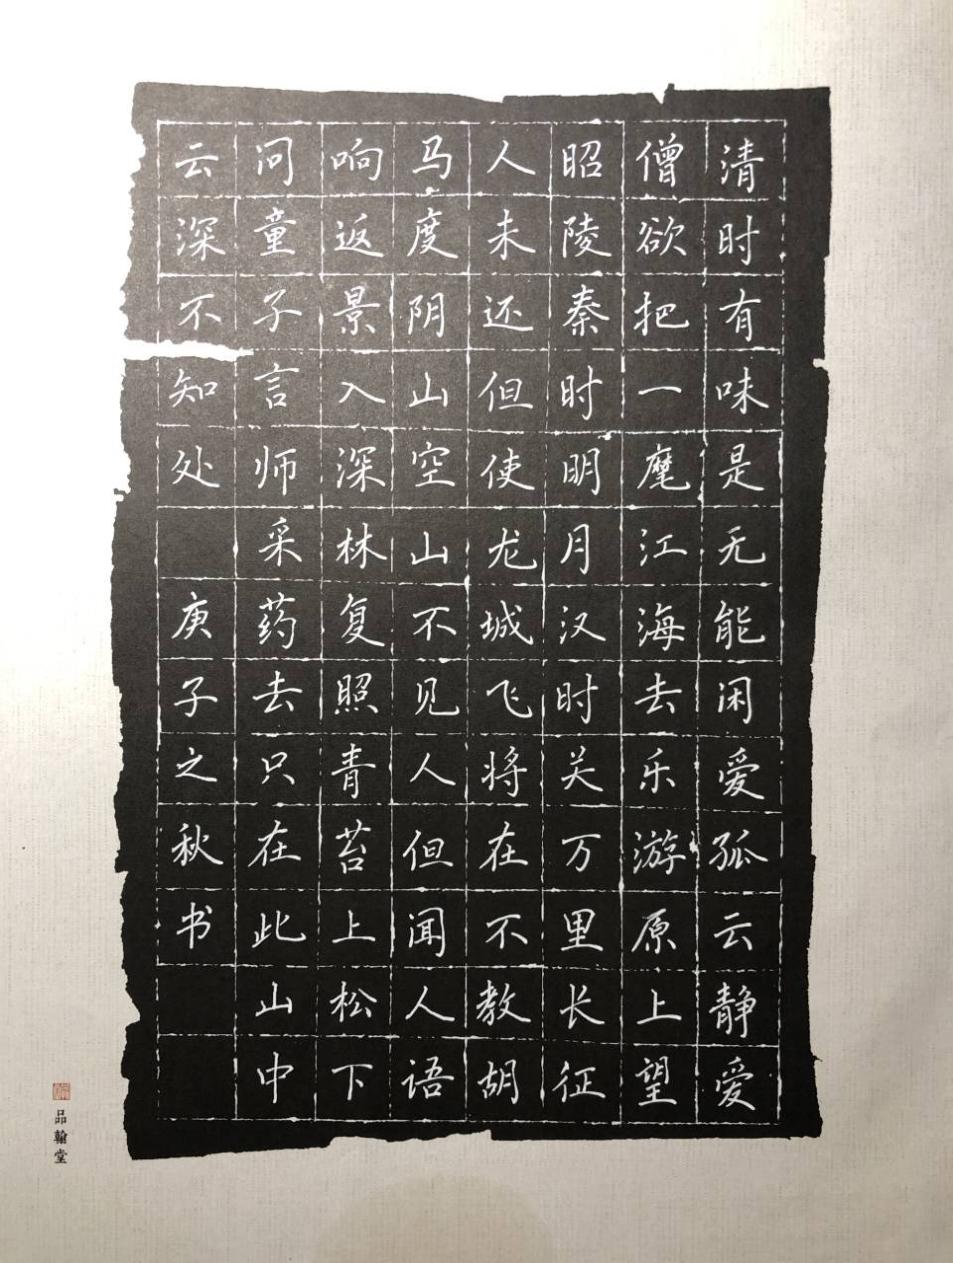 清时有味是无能闲爱孤云静爱
僧欲把一麾江海去乐游原上望
昭陵秦时明月汉时关万里长征
人未还但使龙城飞将在不教胡
马度阴山空山不见人但闻人语
响返景入深林复照青苔上松下
问童子言师采药去只在此山中
云深不知处 庚子之秋书
品翰堂